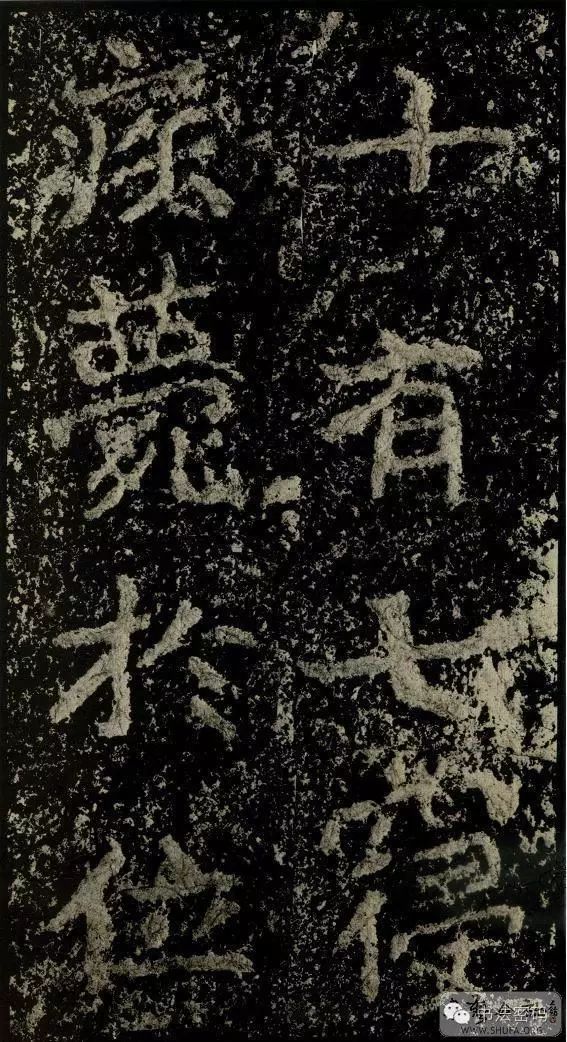 十有七寑
疾薨於位
书法密码
WWW.SHUFA.ORG